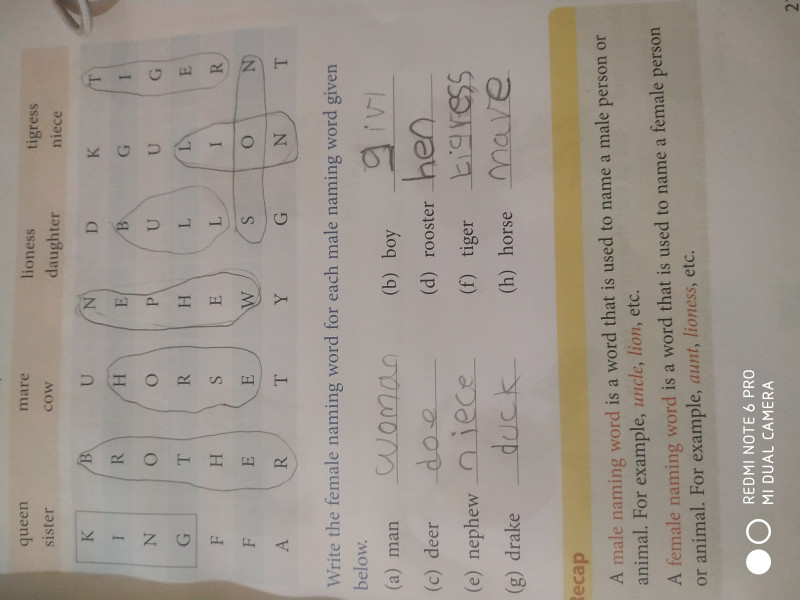 queen mare lioness tigress
sister cow daughter niece
K B U N D K T
I R H E B G I
N O O P U U G
G T R H L L E
F H S E L I R
F E E W S O N
A R T Y G N T
Write the female naming word for each male naming word given
below.
(a) man woman (b) boy girl
(c) deer doe (d) rooster hen
(e) nephew niece (f) tiger tigress
(g) drake duck (h) horse mare
Recap
A male naming word is a word that is used to name a male person or
animal. For example, uncle, lion, etc.
A female naming word is a word that is used to name a female person
or animal. For example, aunt, lioness, etc.
REDMI NOTE 6 PRO
MI DUAL CAMERA